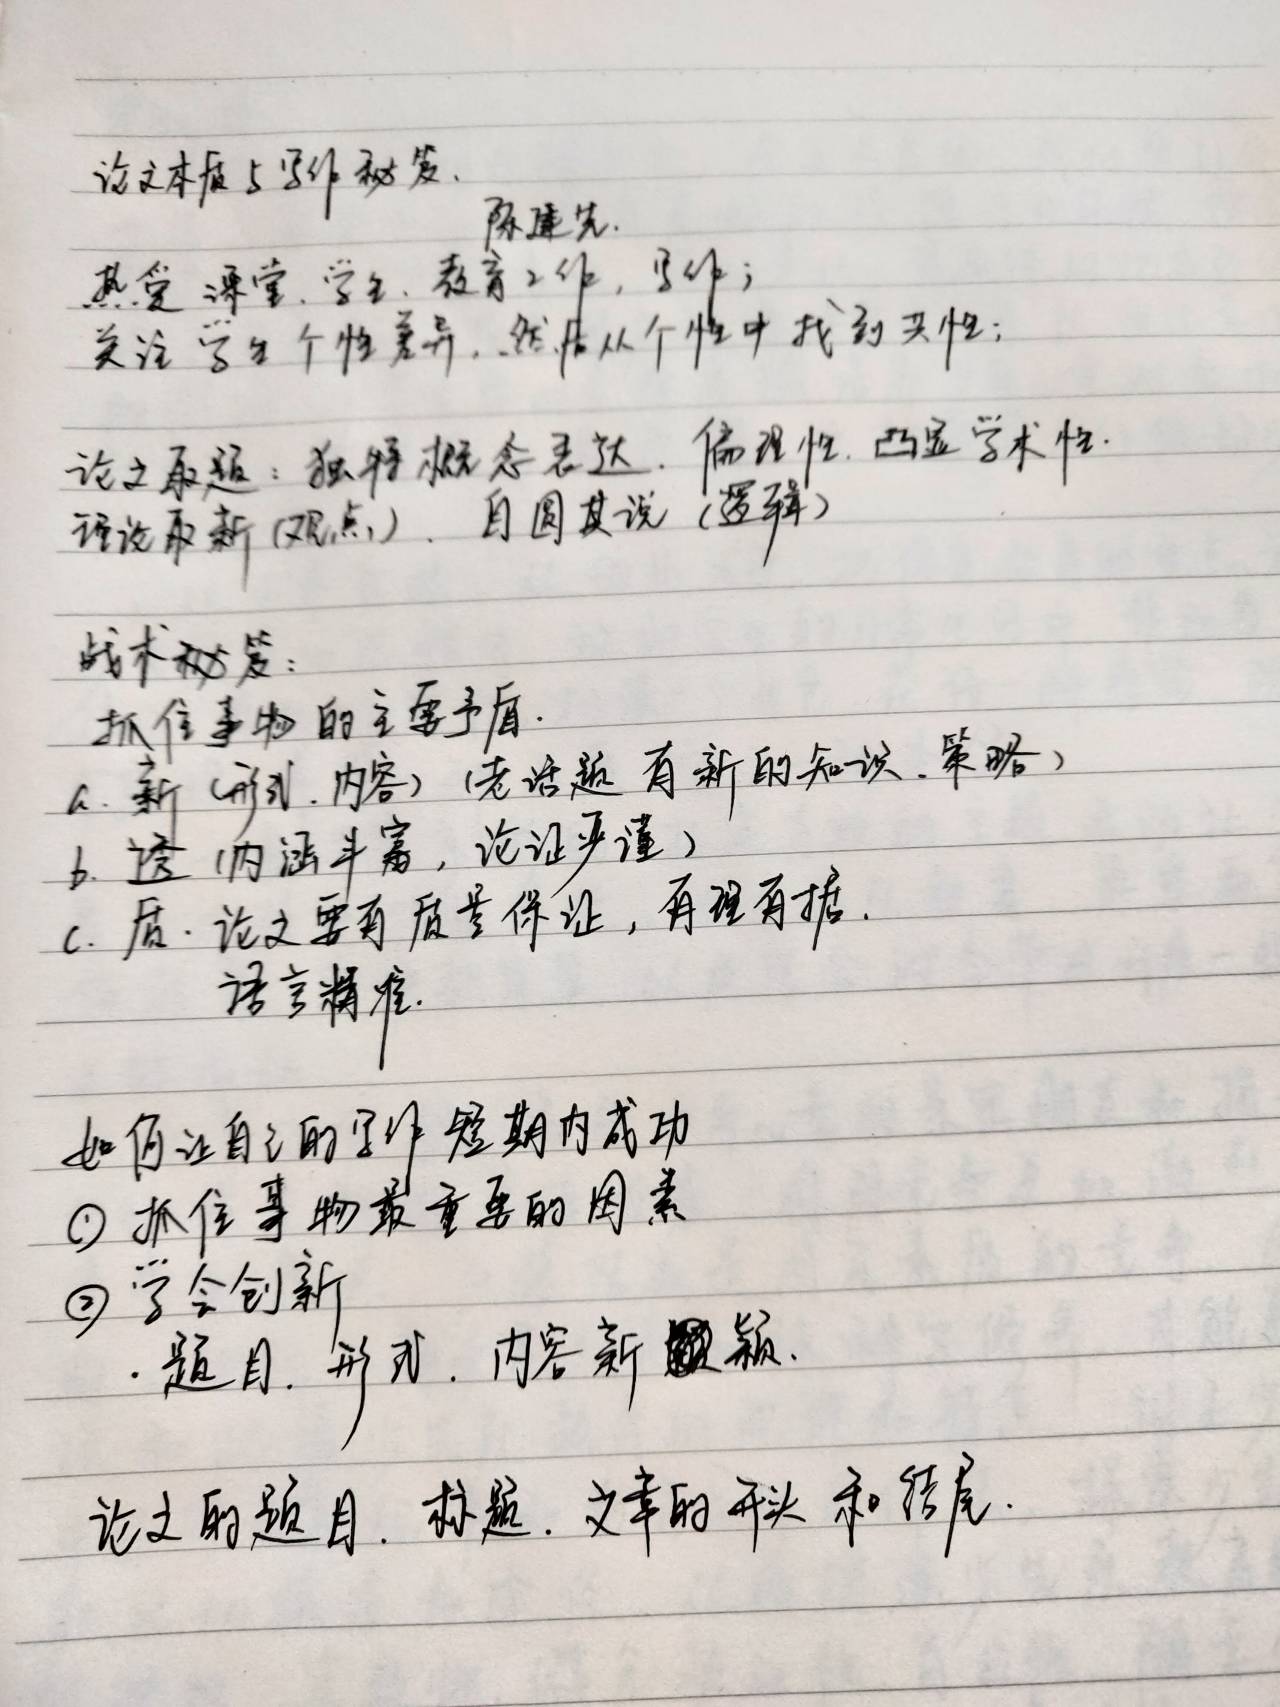 论文本质与写作秘笈.
陈建先.
热爱课堂、学生、教育工作,写作;
关注学生个性差异,然后从个性中找到共性;
论文取题:独特概念表达、偏理性、凸显学术性.
理论取新(观点)、自圆其说(逻辑)
战术秘笈:
抓住事物的主要矛盾.
a. 新(形式、内容)(老话题有新的知识、策略)
b. 透(内涵丰富,论证严谨)
c. 质.论文要有质量保证,有理有据.
语言精准.
如何让自己的写作短期内成功
① 抓住事物最重要的因素
② 学会创新
·题目、形式、内容新颖.
论文的题目、标题、文章的开头和结尾.